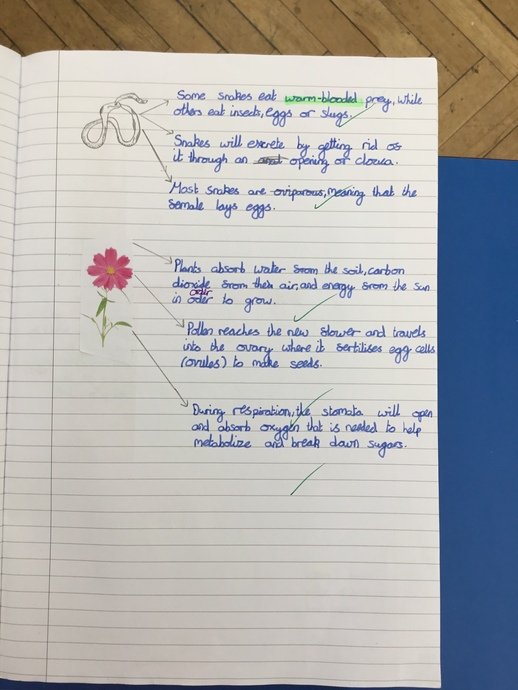 Some snakes eat warm-blooded prey, while
others eat insects, eggs or slugs.
Snakes will excrete by getting rid of
it through an opening or cloaca.
Most snakes are oviparous, meaning that the
female lays eggs.
Plants absorb water from the soil, carbon
dioxide from their air, and energy from the sun
order
in oder to grow.
Pollen reaches the new flower and travels
into the ovary where it fertilises egg cells
(ovules) to make seeds.
During respiration, the stomata will open
and absorb oxygen that is needed to help
metabolize and break down sugars.